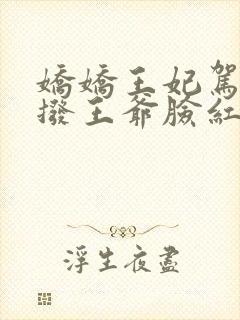 嬌嬌王妃駕
撥王爺臉紅
浮生夜盡